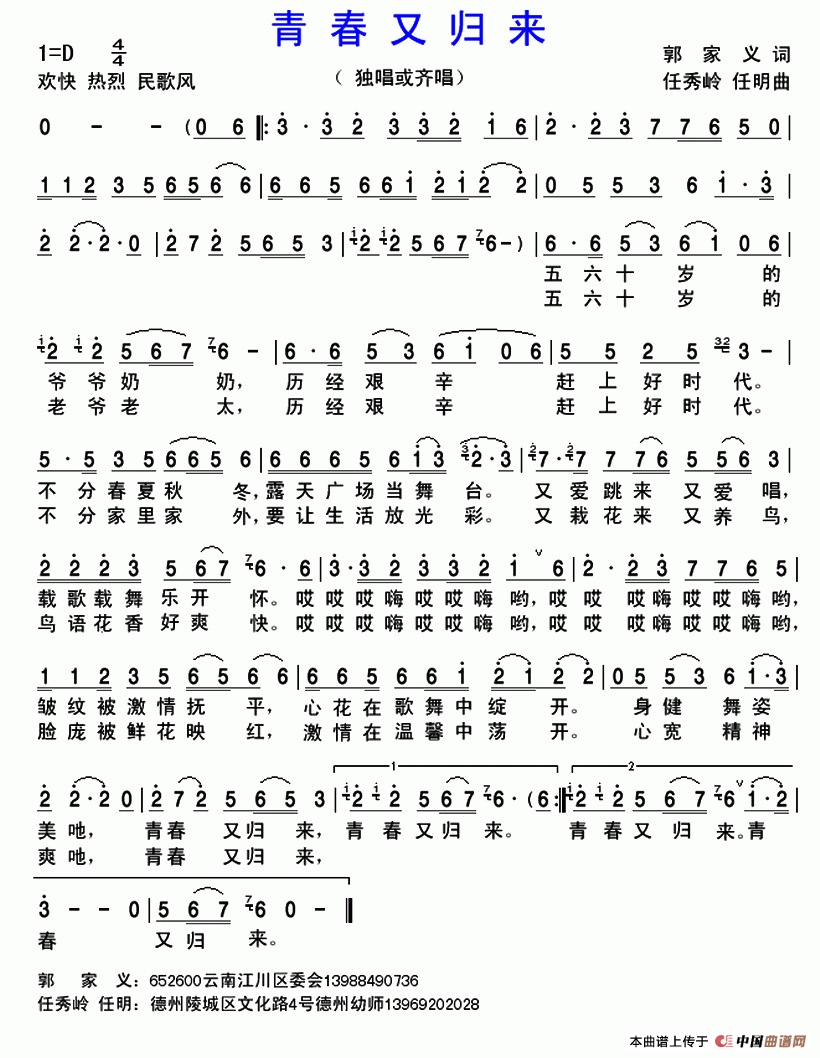 青春又归来
1=D 4/4
郭 家 义 词
欢快 热烈 民歌风
（独唱或齐唱）
任秀岭 任明曲
0 - - (0 6 ‖: 3 · 3 2 3 3 2 1 6 | 2 · 2 3 7 7 6 5 0 |
1 1 2 3 5 6 5 6 6 | 6 6 5 6 6 1 2 1 2 2 | 0 5 5 3 6 1 · 3 |
2 2 · 2 · 0 | 2 7 2 5 6 5 3 | 1 2 1 2 5 6 7 7 6 - ) | 6 · 6 5 3 6 1 0 6 |
五 六 十 岁 的
五 六 十 岁 的
1 2 1 2 5 6 7 7 6 - | 6 · 6 5 3 6 1 0 6 | 5 5 2 5 32 3 - |
爷 爷 奶 奶, 历 经 艰 辛 赶 上 好 时 代。
老 爷 老 太, 历 经 艰 辛 赶 上 好 时 代。
5 · 5 3 5 6 6 5 6 | 6 6 6 5 6 1 3 3 2 · 3 | 2 7 · 2 7 7 7 6 5 5 6 3 |
不 分 春 夏 秋 冬, 露 天 广 场 当 舞 台。 又 爱 跳 来 又 爱 唱,
不 分 家 里 家 外, 要 让 生 活 放 光 彩。 又 栽 花 来 又 养 鸟,
2 2 2 3 5 6 7 7 6 · 6 | 3 · 3 2 3 3 2 1 ∨ 6 | 2 · 2 3 7 7 6 5 |
载 歌 载 舞 乐 开 怀。 哎 哎 嗨 哎 哎 嗨 哟, 哎 哎 哎 嗨 哎 嗨 哟,
鸟 语 花 香 好 爽 快。 哎 哎 嗨 哎 哎 嗨 哟, 哎 哎 哎 嗨 哎 嗨 哟,
1 1 2 3 5 6 5 6 6 | 6 6 5 6 6 1 2 1 2 2 | 0 5 5 3 6 1 · 3 |
皱 纹 被 激 情 抚 平, 心 花 在 歌 舞 中 绽 开。 身 健 舞 姿
脸 庞 被 鲜 花 映 红, 激 情 在 温 馨 中 荡 开。 心 宽 精 神
1 2
2 2 · 2 0 | 2 7 2 5 6 5 3 | 1 2 1 2 5 6 7 7 6 · ( 6 :‖ 1 2 1 2 5 6 7 7 6 ∨ 1 · 2 |
美 吔, 青 春 又 归 来, 青 春 又 归 来。 青 春 又 归 来。青
爽 吔, 青 春 又 归 来,
3 - - 0 | 5 6 7 7 6 0 - ‖
春 又 归 来。
郭 家 义：652600云南江川区委会13988490736
任秀岭 任明：德州陵城区文化路4号德州幼师13969202028
本曲谱上传于 中国曲谱网